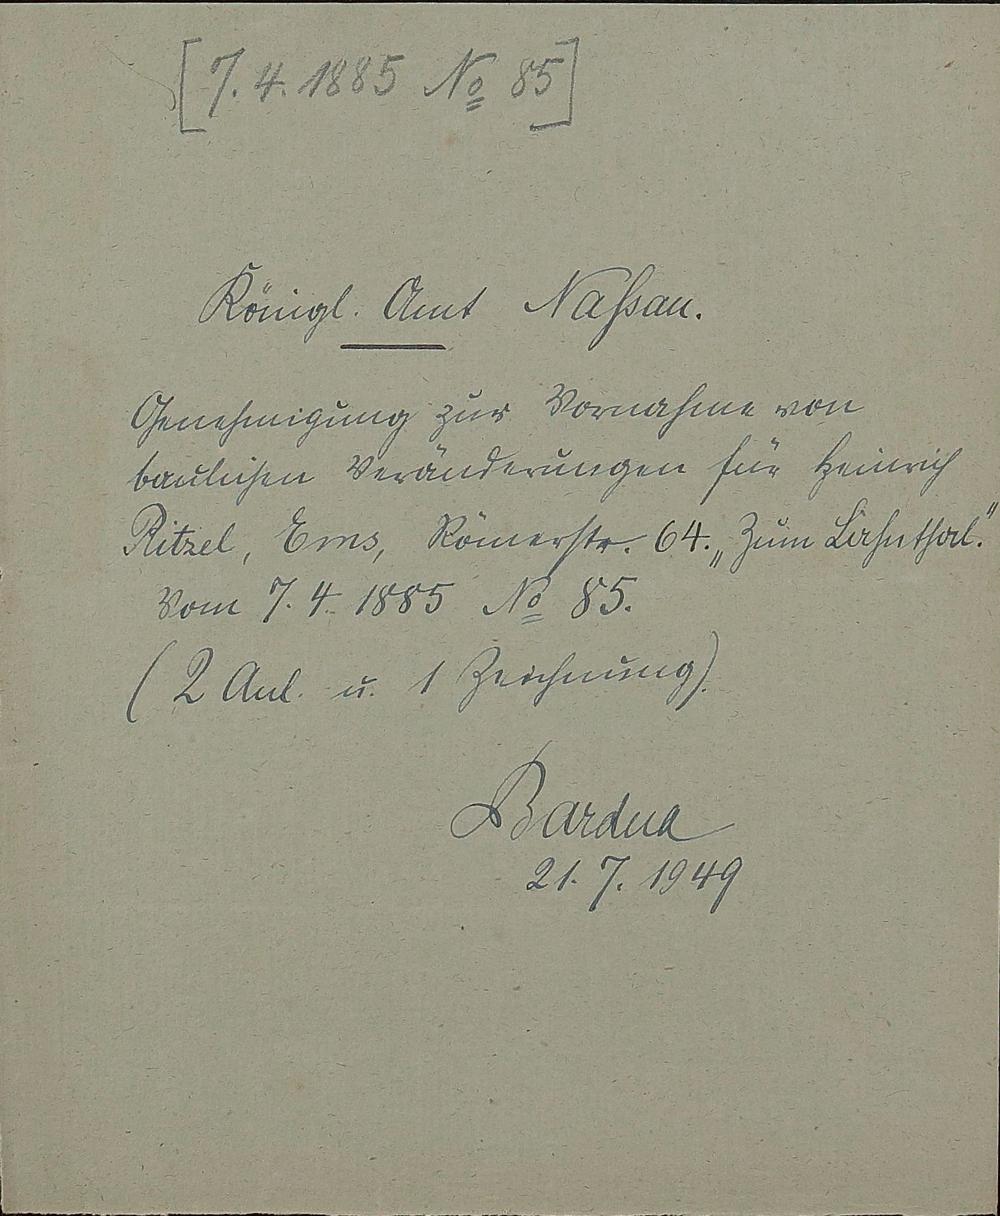 [7. 4. 1885 No 85]
Königl. Amt Naßau.
Genehmigung zur Vornahme von
baulichen Veränderungen für Heinrich
Ritzel, Ems, Römerstr. 64. „Zum Lahnthal."
vom 7. 4. 1885 No 85.
(2 Anl. u. 1 Zeichnung).
Bardua
21. 7. 1949